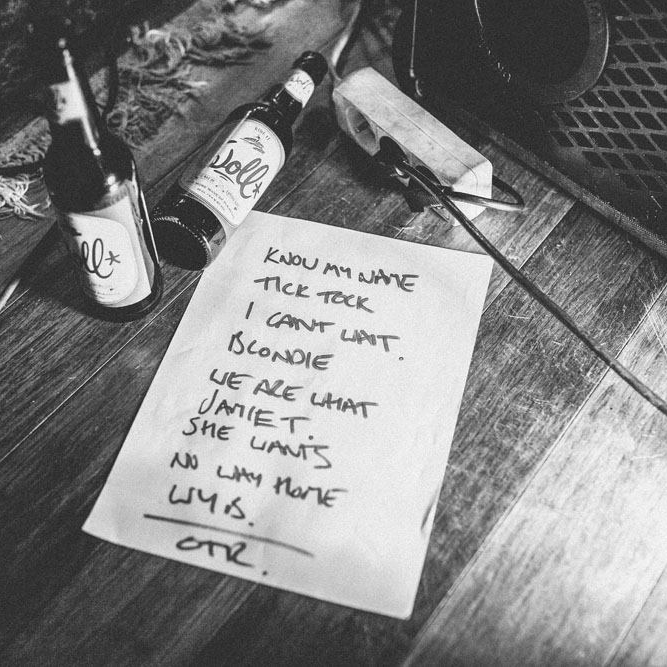 Toll*
KNOW MY NAME
TICK TOCK
I CANT WAIT.
BLONDIE
WE ARE WHAT
JAMIE T.
SHE WANTS
NO WAY HOME
WYB.
OTR.